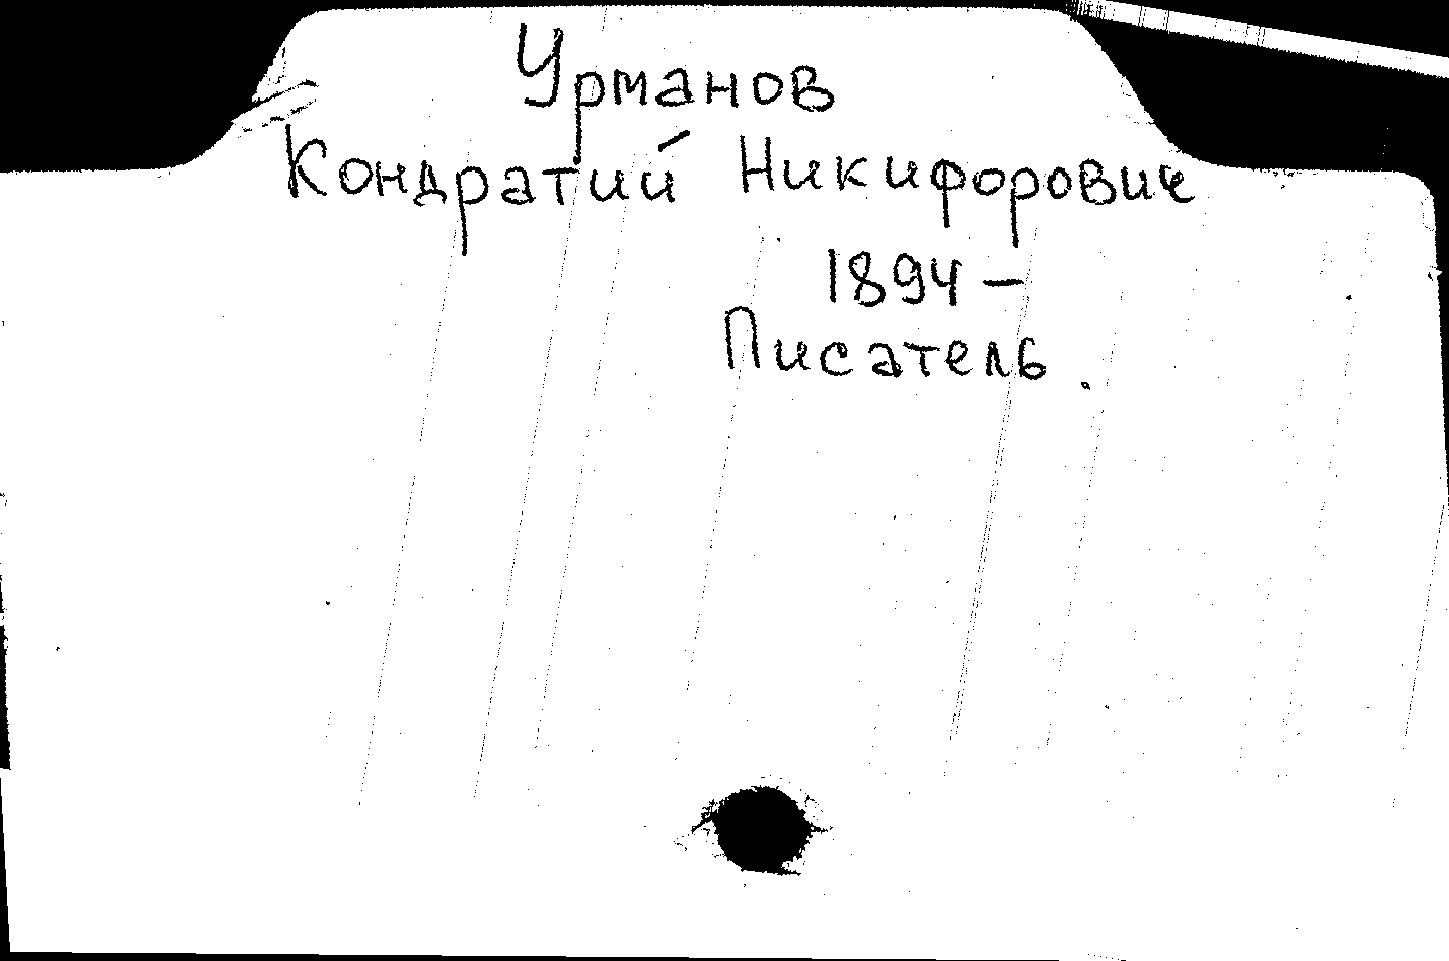 Урманов
Кондратий Никифорович
1894 –
Писатель.